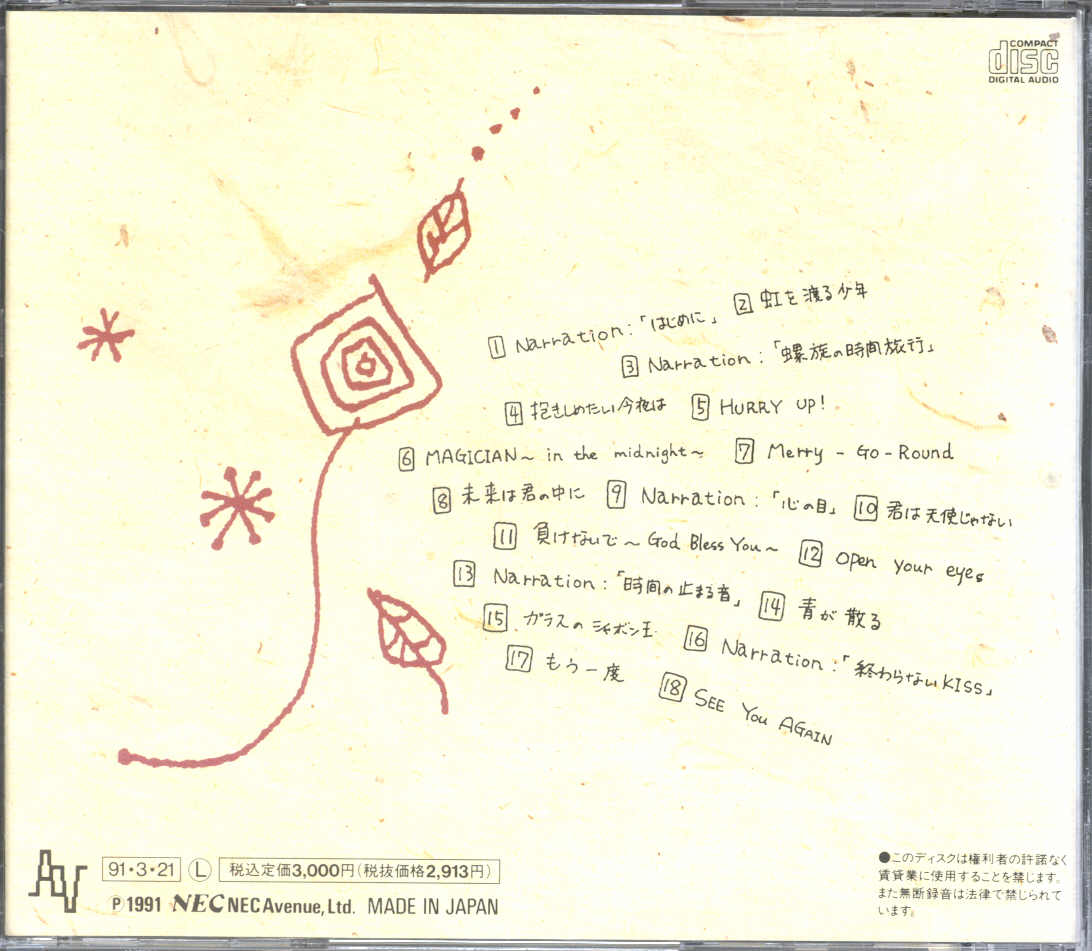 COMPACT
disc
DIGITAL AUDIO
1 Narration:「はじめに」 2 虹を渡る少年
3 Narration:「螺旋の時間旅行」
4 抱きしめたい今夜は 5 HURRY UP!
6 MAGICIAN~ in the midnight~ 7 Merry - Go - Round
8 未来は君の中に 9 Narration:「心の目」 10 君は天使じゃない
11 負けないで ~ God Bless You ~ 12 Open your eyes
13 Narration:「時間の止まる音」 14 青が散る
15 ガラスのシャボン玉 16 Narration:「終わらないKISS」
17 もう一度 18 SEE You AGAIN
91・3・21 L 税込定価3,000円(税抜価格2,913円)
Ⓟ1991 NEC NEC Avenue, Ltd. MADE IN JAPAN
●このディスクは権利者の許諾なく
賃貸業に使用することを禁じます。
また無断録音は法律で禁じられて
います。